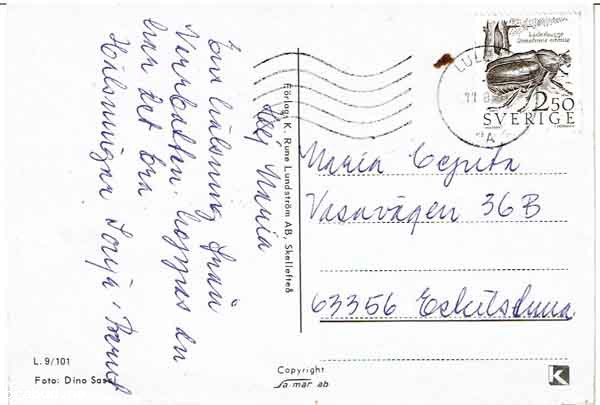 Hej Maria
En hälsning från
Norrbotten. Hoppas du
har det bra
Hälsningar Sonja, Bernt
L. 9/101
Foto: Dino Sassi
Förlag: K. Rune Lundström AB, Skellefteå
Copyright
Sa-mar ab
K
LULEÅ
11 8
läderbagge
Osmoderma eremita
2.50
SVERIGE
Maria
Vasavägen 36B
63356 Eskilstuna